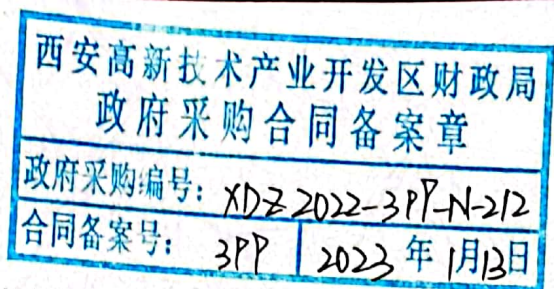 西安高新技术产业开发区财政局
政府采购合同备案章
政府采购编号: XDZ2022-3PP-N-212
合同备案号: 3PP 2023年1月13日